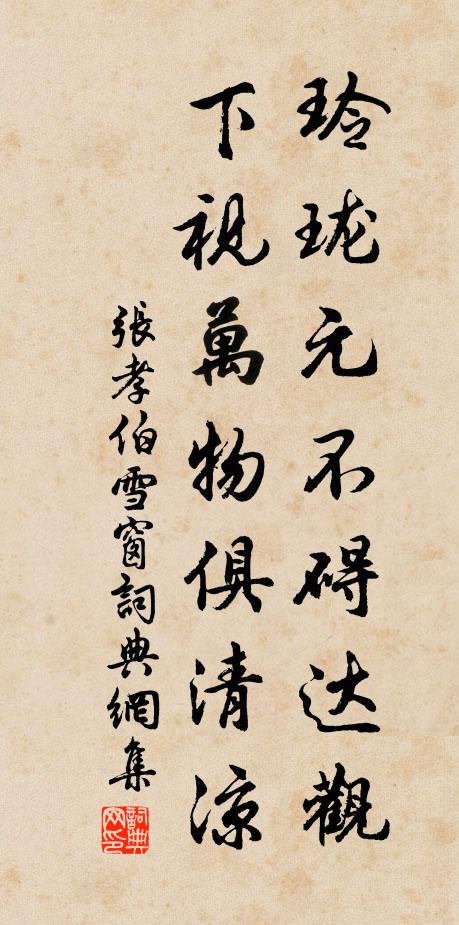 玲珑元不碍达觀
下視萬物俱清凉
張孝伯雪窗詞典網集
詞典网印